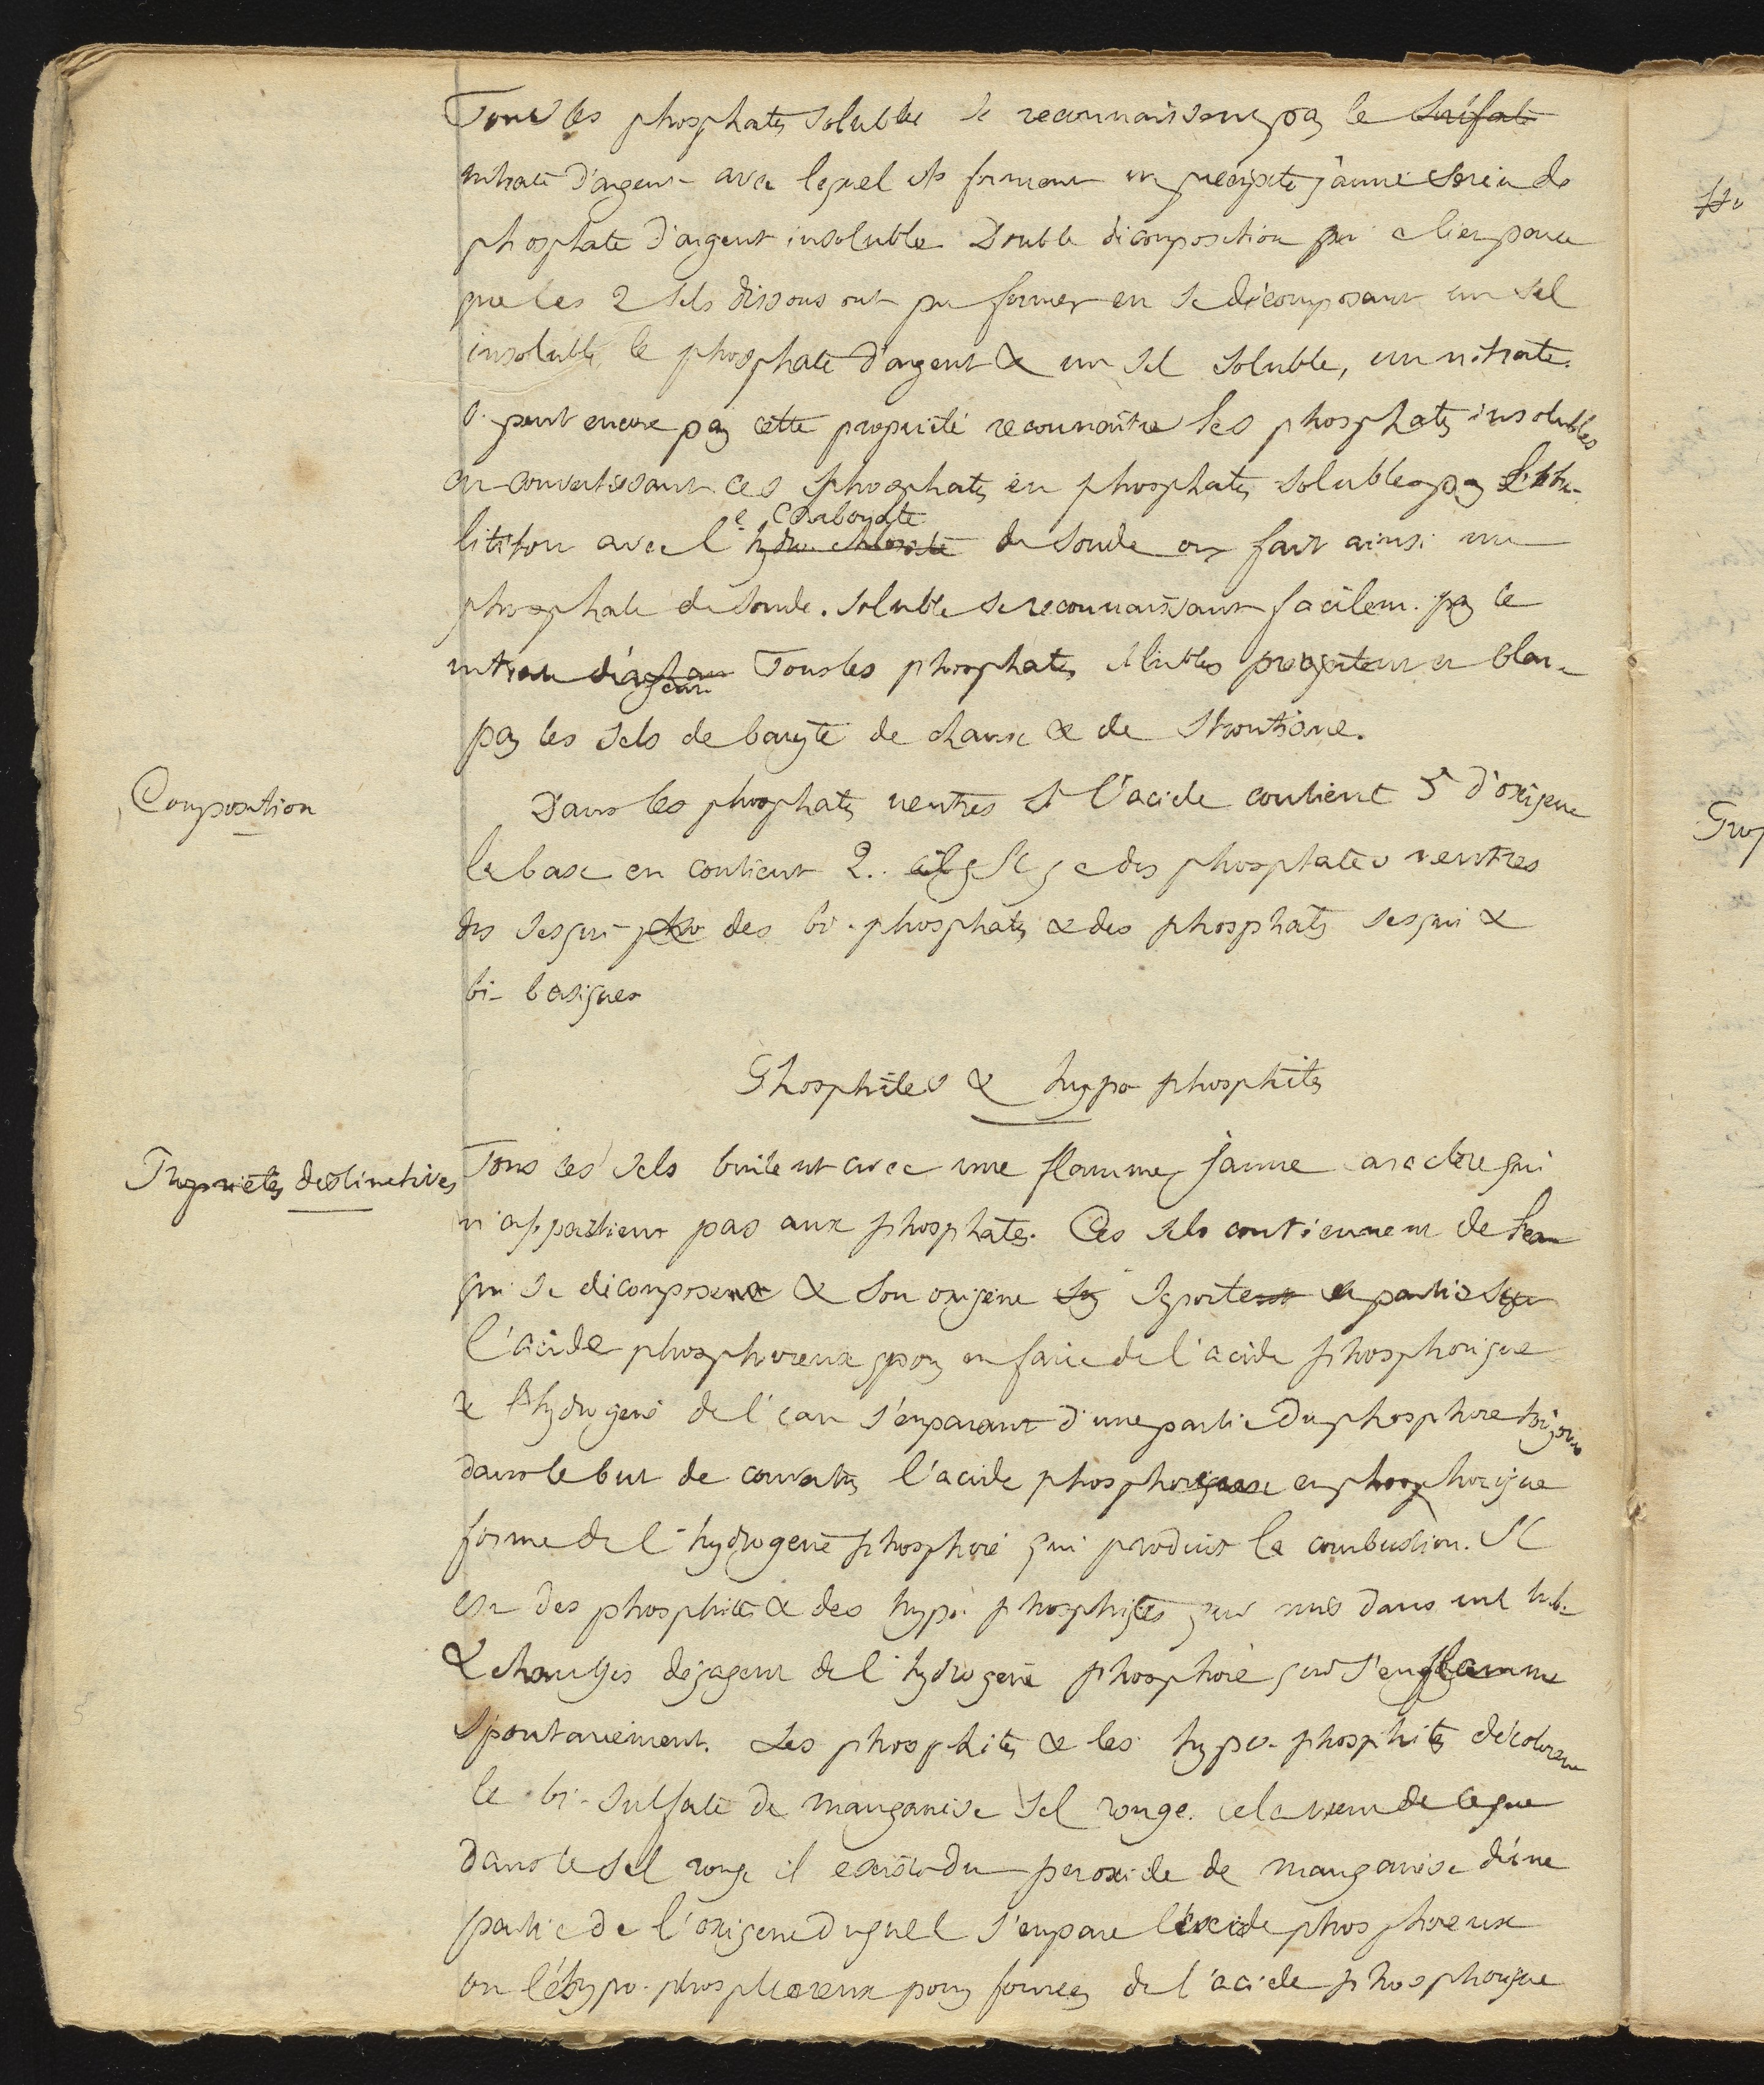 Tous les phosphates solubles se reconnaissent par le sulfate
nitrate d'argent avec lequel ils forment un précipité jaune serin de
phosphate d'argent insoluble Double décomposition qui a lieu parce
que les 2 sels dissous ont pu former en se décomposant un sel
insoluble le phosphate d'argent & un sel soluble, un nitrate.
peut encore par cette propriété reconnaître les phosphates insolubles
en convertissant ces phosphates en phosphates solubles par l'ébu-
e Carbonate
lition avec l'hydro chlorate de soude on fait ainsi un
phosphate de soude. soluble se reconnaissant facilem. par le
nitrate d'argent Tous les phosphates solubles précipitent en blanc
par les sels de baryte de chaux & de strontiane.
Composition
Dans les phosphates neutres si l'acide contient 5 d'oxigene
la base en contient 2. Il y a des phosphates neutres
des sesqui- pho des bi-phosphates & des phosphates sesqui &
bi-basiques
Phosphites & hypo-phosphites
Propriétés distinctives
Tous ces sels brulent avec une flamme jaune caractère qui
n'appartient pas aux phosphates. Ces sels contiennent de l'eau
qui se décompose & son oxigène se porte en partie sur
l'acide phosphoreux pour en faire de l'acide phosphorique
& l'hydrogène de l'eau s'emparant d'une partie du phosphore toujours
dans le but de convertir l'acide phosphoreux en phosphorique
forme de l'hydrogene phosphoré qui produit la combustion. Il
est des phosphites & des hypo-phosphites qui mis dans un tube
& chauffés dégagent de l'hydrogene phosphoré qui s'enflamme
spontanément. Les phosphites & les hypo-phosphites décolorent
le bi-sulfate de manganèse sel rouge. cela vient de ce que
dans le sel rouge il existe du peroxide de manganèse d'une
partie de l'oxigene duquel s'empare l'acide phosphoreux
ou l'hypo-phosphoreux pour former de l'acide phosphorique